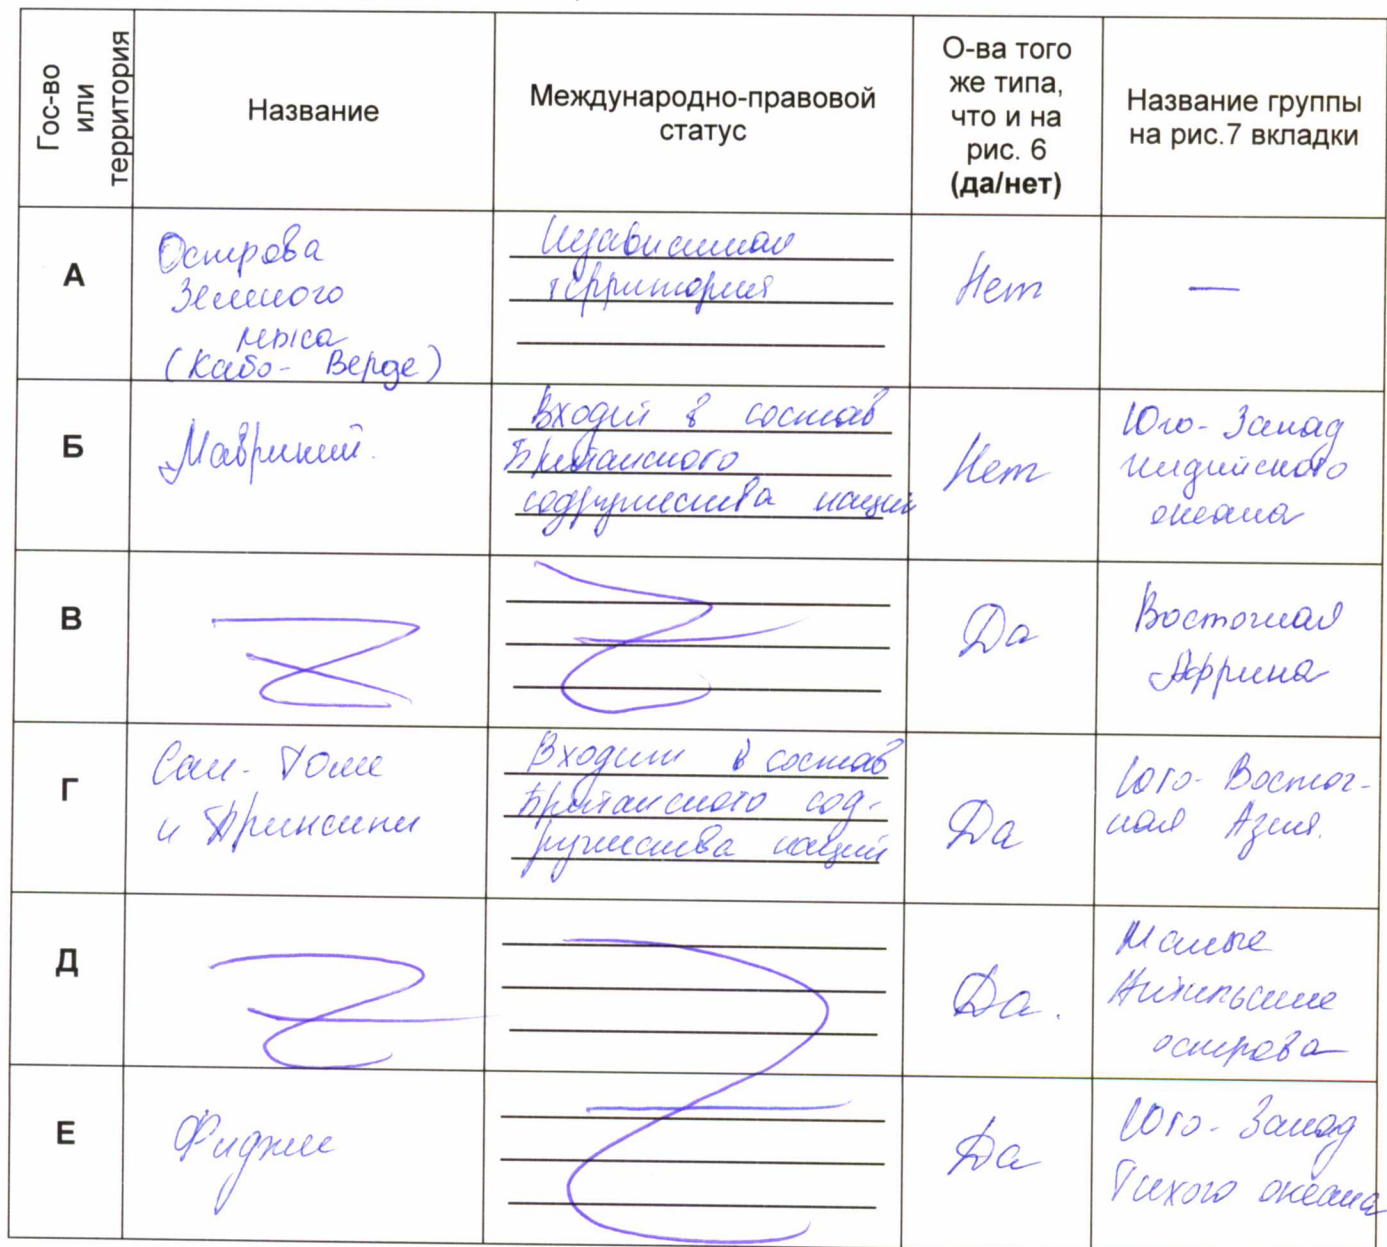 Гос-во
или
территория
Название
Международно-правовой
статус
О-ва того
же типа,
что и на
рис. 6
(да/нет)
Название группы
на рис.7 вкладки
А
Острова
Зеленого
мыса
(Кабо- Верде)
Независимая
территория
Нет
—
Б
Маврикий.
Входит в состав
Британского
содружества наций
Нет
Юго-Запад
индийского
океана
В
Да
Восточная
Африка
Г
Сан-Томе
и Принсипи
Входит в состав
Британского сод-
ружества наций
Да
Юго-Восточ-
ная Азия.
Д
Да.
Малые
Антильские
острова
Е
Фиджи
Да
Юго-Запад
Тихого океана